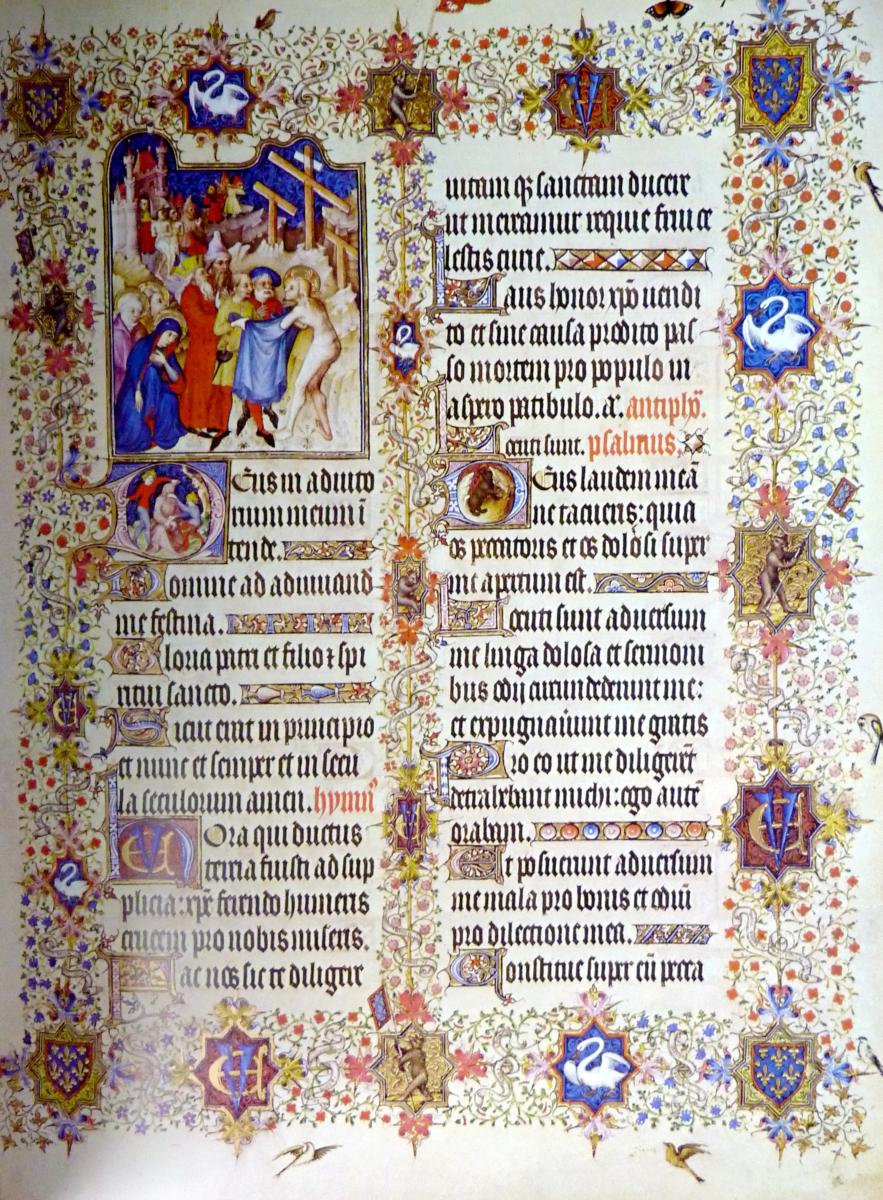 Deus in adiuto
rium meum ī
tende.
Domine ad adiuuand
me festina.
Gloria patri et filio et spi
ritui sancto.
Sicut erat in principio
et nunc et semper et in secu
la seculorum amen. hymn̄
Hora qui ductus
tercia fuisti ad sup
plicia. xp̄e ferendo humeris
crucem pro nobis miseris.
Fac nos sic te diliger̄
uitam qꝫ sanctam ducere
ut mereamur requie frui ce
lestis curie.
Laus honor xp̄o uendi
to et sine causa prodito pas
so mortem pro populo in
aspero patibulo. a. antiph̄.
Locuti sunt. psalmus
Deus laudem meā
ne tacueris: quia
os peccatoris et os dolosi super
me apertum est.
Locuti sunt aduersum
me lingua dolosa et sermoni
bus odii circumdederunt me:
et expugnauerunt me gratis
Pro eo ut me diligerēt
detrahebant michi: ego autē
orabam.
Et posuerunt aduersum
me mala pro bonis et odiū
pro dilectione mea.
Constitue super eū pecca